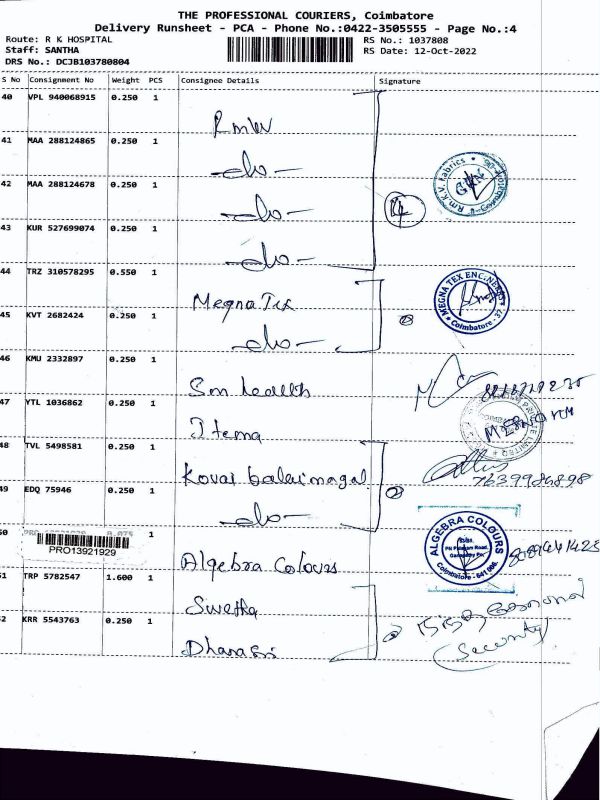 THE PROFESSIONAL COURIERS, Coimbatore
Delivery Runsheet - PCA - Phone No.:0422-3505555 - Page No.:4
Route: R K HOSPITAL
RS No.: 1037808
Staff: SANTHA
RS Date: 12-Oct-2022
DRS No.: DCJB103780804
S No Consignment No Weight PCS Consignee Details Signature
40 VPL 940068915 0.250 1
RmKV
41 MAA 288124865 0.250 1
-do-
42 MAA 288124678 0.250 1
-do-
4
Rm.K.V. Fabrics
43 KUR 527699074 0.250 1
-do-
44 TRZ 310578295 0.550 1
Megna Tex
MEGNA TEX ENGINEERS
Coimbatore - 37
45 KVT 2682424 0.250 1
-do-
2
46 KMU 2332897 0.250 1
Sm health
47 YTL 1036862 0.250 1
Itema
48 TVL 5498581 0.250 1
Kovai Kalaimagal
2
7639986898
49 EDQ 75946 0.250 1
-do-
50
PRO13921929
Algebra Colours
ALGEBRA COLOURS
Coimbatore - 641 006.
51 TRP 5782547 1.600 1
Swetha
52 KRR 5543763 0.250 1
Dhanasri
2
(Security)